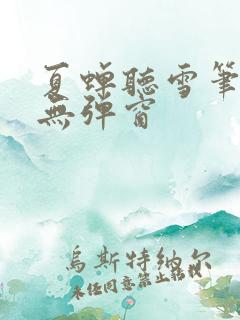 夏蟬聽雪筆
無彈窗
烏斯特納尔
未经同意禁止转载